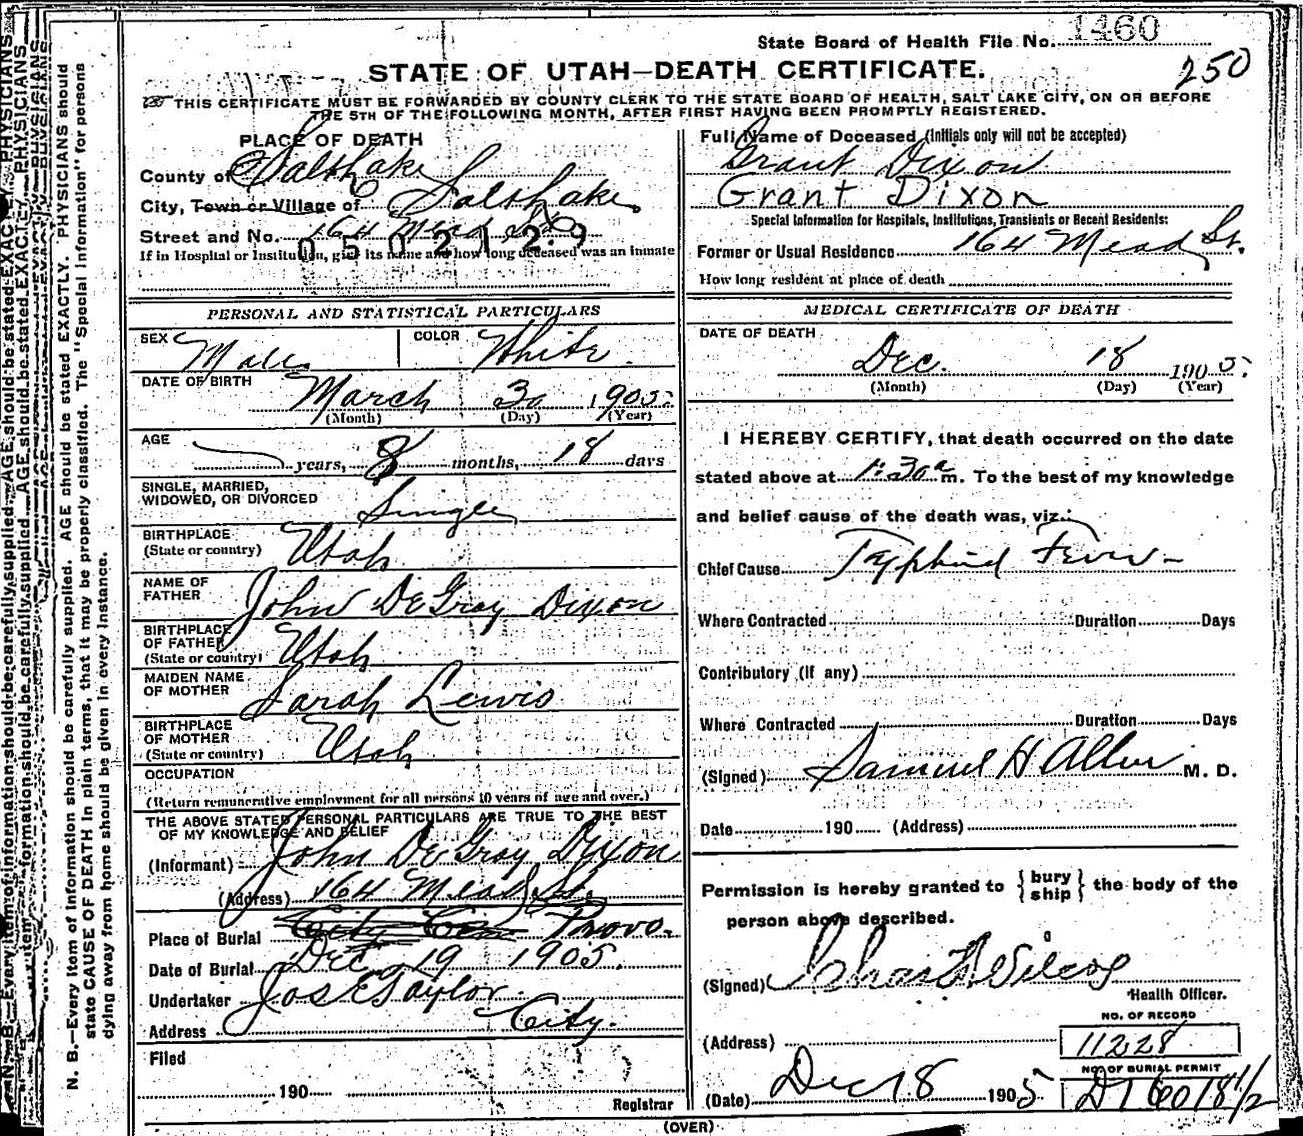 State Board of Health File No. 1460
250
STATE OF UTAH—DEATH CERTIFICATE.
THIS CERTIFICATE MUST BE FORWARDED BY COUNTY CLERK TO THE STATE BOARD OF HEALTH, SALT LAKE CITY, ON OR BEFORE
THE 5TH OF THE FOLLOWING MONTH, AFTER FIRST HAVING BEEN PROMPTLY REGISTERED.
PLACE OF DEATH
County of Salt Lake
City, Town or Village of Salt Lake
Street and No. 164 Mead St.
0502129
If in Hospital or Institution, give its name and how long deceased was an inmate
Full Name of Deceased (Initials only will not be accepted)
Grant Dixon
Grant Dixon
Special Information for Hospitals, Institutions, Transients or Recent Residents:
Former or Usual Residence 164 Mead St.
How long resident at place of death
PERSONAL AND STATISTICAL PARTICULARS
SEX Male COLOR White
DATE OF BIRTH March 30 1905
(Month) (Day) (Year)
AGE years, 8 months, 18 days
SINGLE, MARRIED,
WIDOWED, OR DIVORCED Single
BIRTHPLACE
(State or country) Utah
NAME OF
FATHER John DeGray Dixon
BIRTHPLACE
OF FATHER
(State or country) Utah
MAIDEN NAME
OF MOTHER Sarah Lewis
BIRTHPLACE
OF MOTHER
(State or country) Utah
OCCUPATION
(Return remunerative employment for all persons 10 years of age and over.)
THE ABOVE STATED PERSONAL PARTICULARS ARE TRUE TO THE BEST
OF MY KNOWLEDGE AND BELIEF
(Informant) John DeGray Dixon
(Address) 164 Mead St.
Place of Burial City Cem Provo.
Date of Burial Dec 19 1905.
Undertaker Jos E Taylor
Address City.
Filed
190
Registrar
MEDICAL CERTIFICATE OF DEATH
DATE OF DEATH
Dec. 18 1905.
(Month) (Day) (Year)
I HEREBY CERTIFY, that death occurred on the date
stated above at 1:30 a m. To the best of my knowledge
and belief cause of the death was, viz.:
Chief Cause Typhoid Fever
Where Contracted Duration Days
Contributory (if any)
Where Contracted Duration Days
(Signed) Samuel H Allen M. D.
Date 190 (Address)
Permission is hereby granted to {bury ship} the body of the
person above described.
(Signed) Chas F Wilcox
Health Officer.
NO. OF RECORD
(Address) 11228
NO. OF BURIAL PERMIT
(Date) Dec 18 1905 D16018 1/2
(OVER)
N. B.—Every item of information should be carefully supplied. AGE should be stated EXACTLY. PHYSICIANS should
state CAUSE OF DEATH in plain terms, that it may be properly classified. The "Special Information" for persons
dying away from home should be given in every instance.